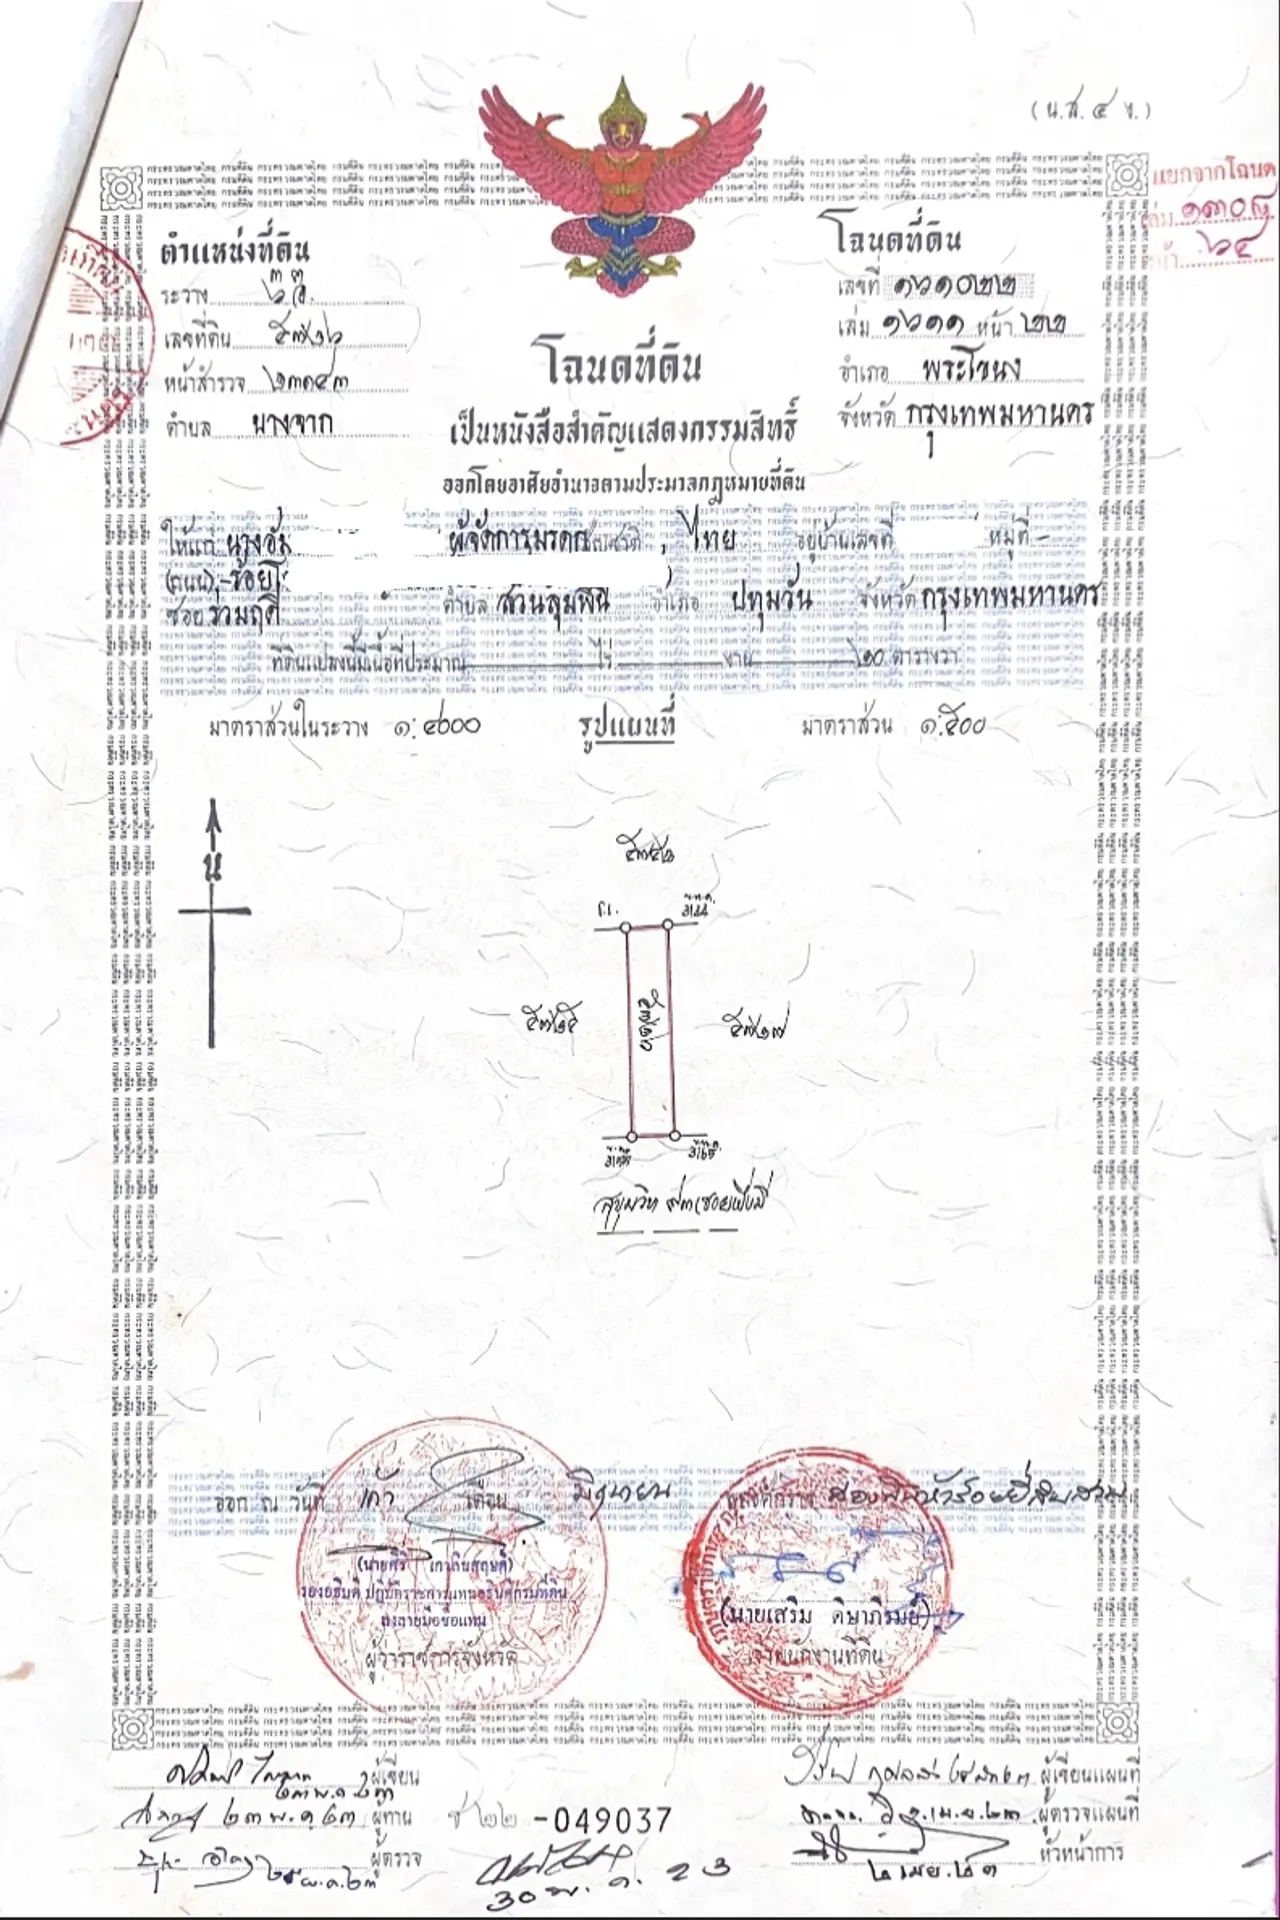 (น.ส.๔ จ.)
แยกจากโฉนด
เล่ม ๑๓๐๘
หน้า ๖๔
ตำแหน่งที่ดิน
ระวาง
เลขที่ดิน ๕๗๒๖
หน้าสำรวจ ๒๓๑๔๓
ตำบล บางจาก
โฉนดที่ดิน
เลขที่ ๑๖๑๐๒๒
เล่ม ๑๖๑๑ หน้า ๒๒
อำเภอ พระโขนง
จังหวัด กรุงเทพมหานคร
โฉนดที่ดิน
เป็นหนังสือสำคัญแสดงกรรมสิทธิ์
ออกโดยอาศัยอำนาจตามประมวลกฎหมายที่ดิน
ให้แก่ นาง ผู้จัดการมรดก สัญชาติ ไทย อยู่บ้านเลขที่ หมู่ที่ -
(ถนน)
ซอย ร่วมฤดี ตำบล สวนลุมพินี อำเภอ ปทุมวัน จังหวัด กรุงเทพมหานคร
ที่ดินแปลงนี้มีเนื้อที่ประมาณ ไร่ งาน ๒๐ ตารางวา
มาตราส่วนในระวาง ๑:๔๐๐๐ รูปแผนที่ มาตราส่วน ๑:๕๐๐
น
๕๗๒๕ ๕๗๒๖ ๕๗๒๗
ออก ณ วันที่ เก้า เดือน มิถุนายน พุทธศักราช สองพันห้าร้อยยี่สิบสาม
รองอธิบดี ปฏิบัติราชการแทนอธิบดีกรมที่ดิน
ลงลายมือชื่อแทน
ผู้ว่าราชการจังหวัด
(นายเสริม ดิษาภิรมย์)
เจ้าพนักงานที่ดิน
ผู้เขียน
๒๓ พ.ค. ๒๓
๒๓ พ.ค. ๒๓ ผู้ทาน
ผู้ตรวจ
๒๙ พ.ค. ๒๓
ช ๒๒ -049037
30 พ.ค. 23
ผู้เขียนแผนที่
ผู้ตรวจแผนที่
หัวหน้าการ